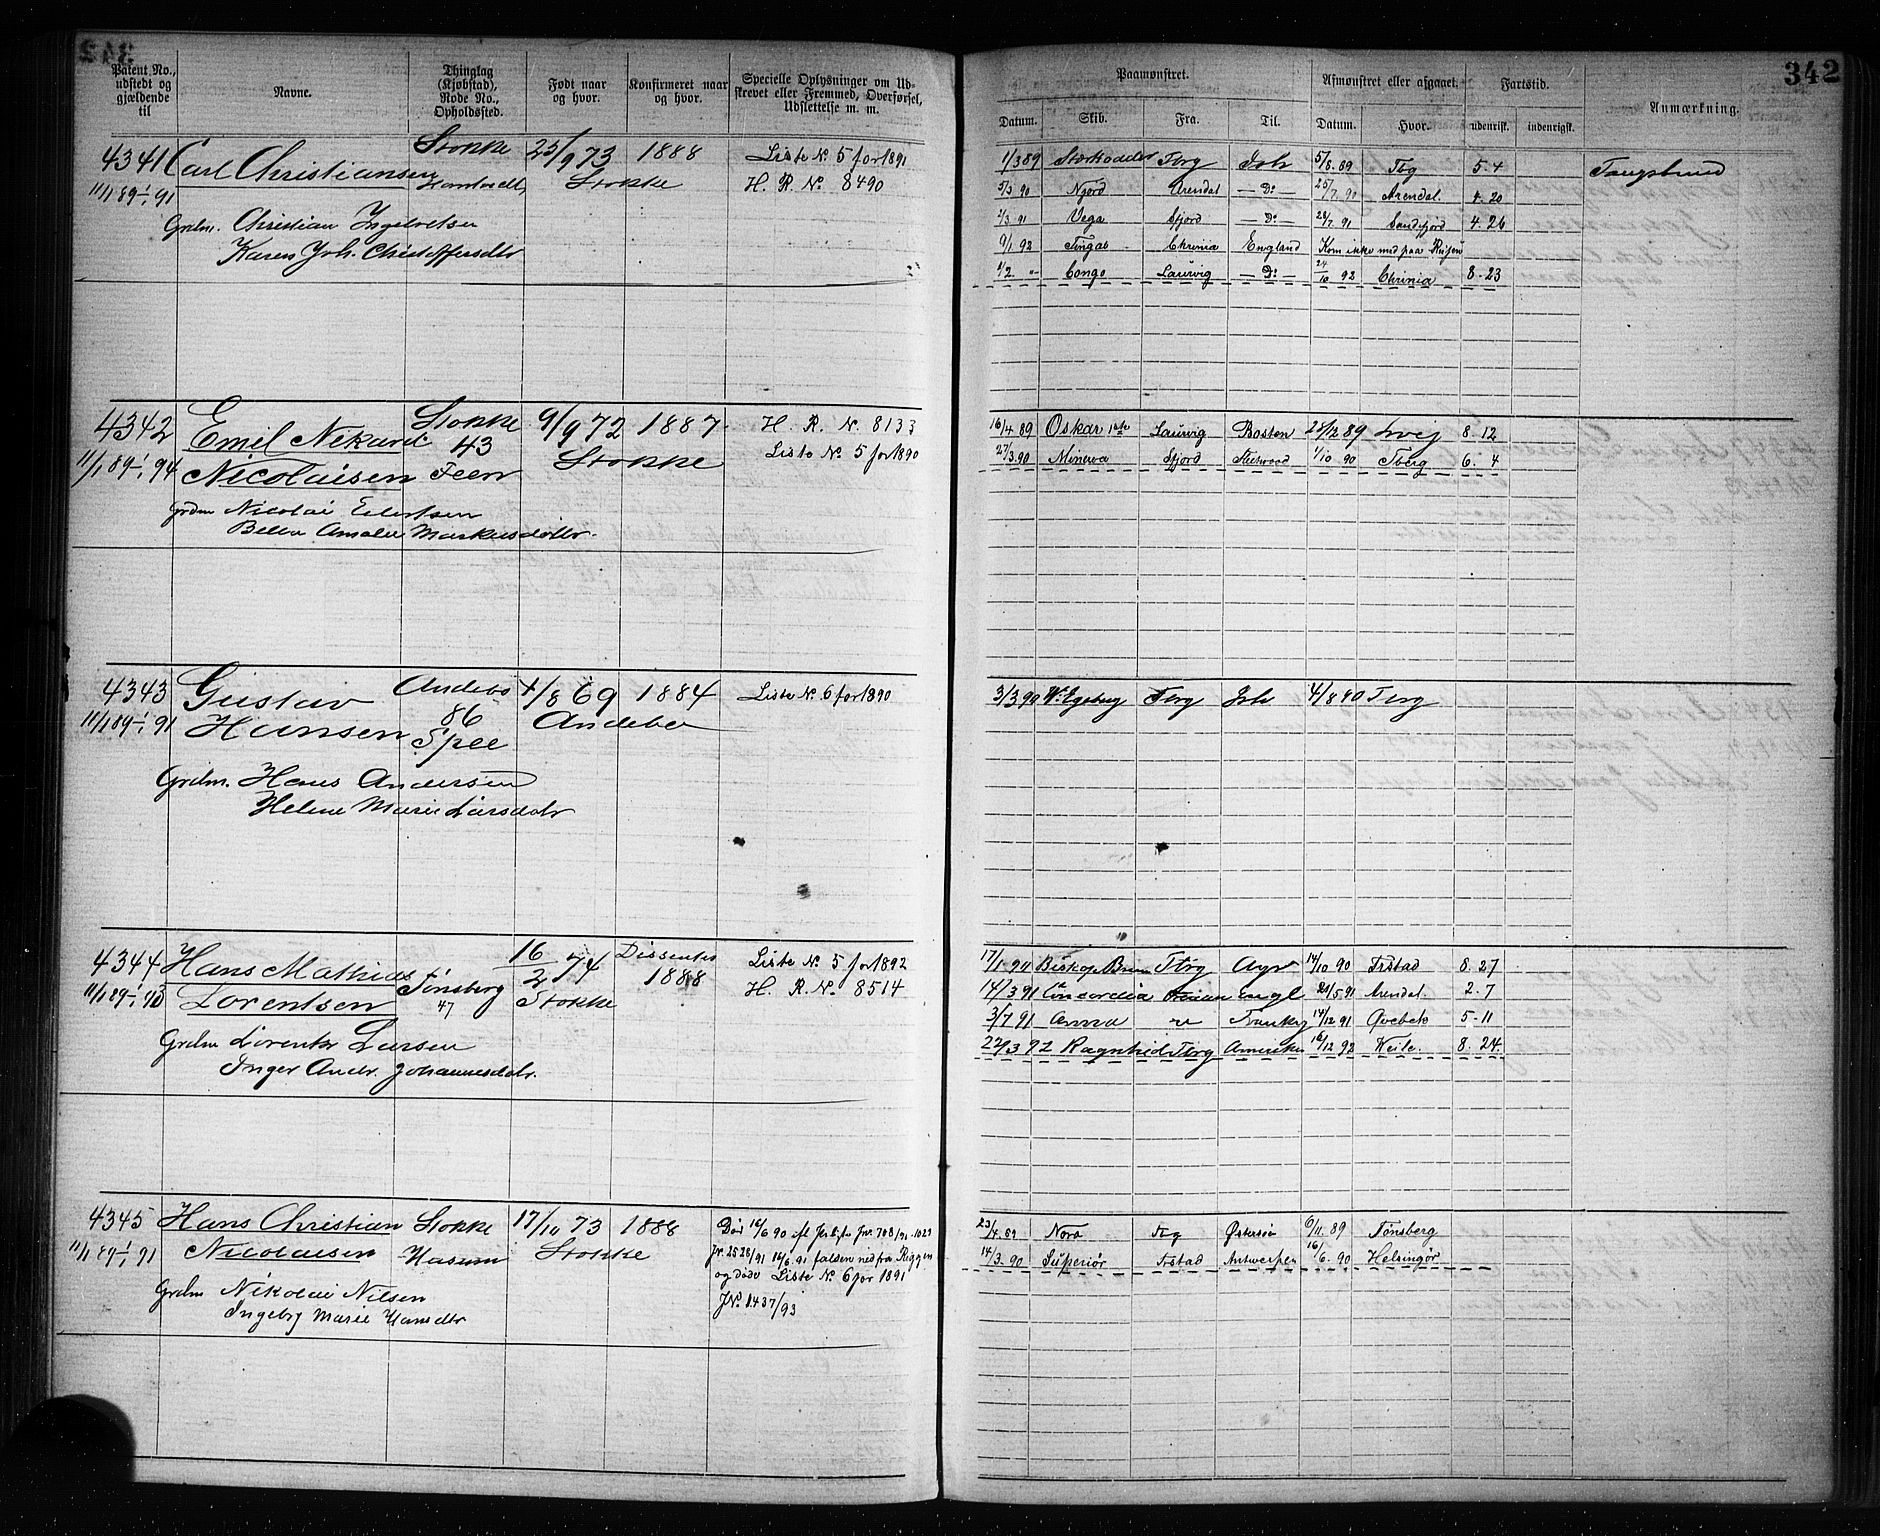 342
Patent No., udstedt og gjældende til
Navne.
Thinglag (Kjøbstad), Rode No., Opholdssted.
Født naar og hvor.
Konfirmeret naar og hvor.
Specielle Oplysninger om Udskrevet eller Fremmed, Overførsel, Udslettelse m. m.
Paamønstret.
Afmønstret eller afgaaet.
Fartstid.
Anmærkning.
Datum. Skib. Fra. Til. Datum. Hvor. udenrigsk. indenrigsk.
4341 Carl Christiansen Stokke 25/9 73 1888 Liste No. 5 for 1891
11/1 89-1/1 91 Stokke H. R. No. 8490
Grdm. Christian Ingebretsen
Karen Joh. Christoffersdtr
1/3 89 Tbrg Ish 5/8 89 Tbg 5.4
5/3 90 Njord Arendal — Do — 25/7 90 Arendal 4.20
2/3 91 Vega Sfjord — Do — 28/7 91 Sandefjord 4.26
9/1 92 Chrinia England Kom ikke med paa Reisen
1/2 " Congo Laurvig — Do — 24/10 92 Chrinia 8.23
4342 Emil Nikard Stokke 9/9 72 1887 H. R. No. 8133
11/1 89-1/1 94 Nicolaisen 43 Stokke Liste No. 5 for 1890
Feen
Grdm Nicolai Eilertsen
Amalie Markusdatter
16/4 89 Oskar Laurvig Boston 21/12 89 Lvig 8.12
27/3 90 Minerva Sfjord Fleetwood 1/10 90 Tberg 6.4
4343 Gustav Andebo 4/8 69 1884 Liste No. 6 for 1890
11/1 89-1/1 91 Hansen 86 Andebo
Spee
Grdm. Hans Andersen
Helene Marie Larsdatr
3/3 90 Wm Egeberg Tbrg Ish 4/8 80 Tbrg
4344 Hans Mathias Tønsberg 16/2 74 Dissenter 1888 Liste No. 5 for 1892
11/1 89-1/1 90 Lorentsen 47 Stokke H. R. No. 8514
Grdm Lorents Larsen
Inger Andr. Johannesdtr.
17/1 90 Biskop Brun Tbrg Ayr 14/10 90 Frstad 8.27
14/3 91 Concordia Engl 21/5 91 Arendal 2.7
3/7 91 Anna " Frankrg 14/12 91 Qvebek 5-11
22/3 92 Ragnhild Tbrg Amerika 16/12 92 8.24
4345 Hans Christian Stokke 17/11 73 1888 Død 16/6 90 Jnr. 708/91. 1023
11/1 89-1/1 91 Nicolaisen Stokke Jr. 2528/91 16/6.91 falden ned fra Riggen
og døde Liste No. 6 for 1891
JNo. 1437/93
Grdm Nikolai Nilsen
Ingeborg Marie Hansdtr
23/4 89 Nora Tbg Østersøe 6/11 89 Tønsberg
14/3 90 Superiør Frstad Antwerpen 16/6 90 Helsingør